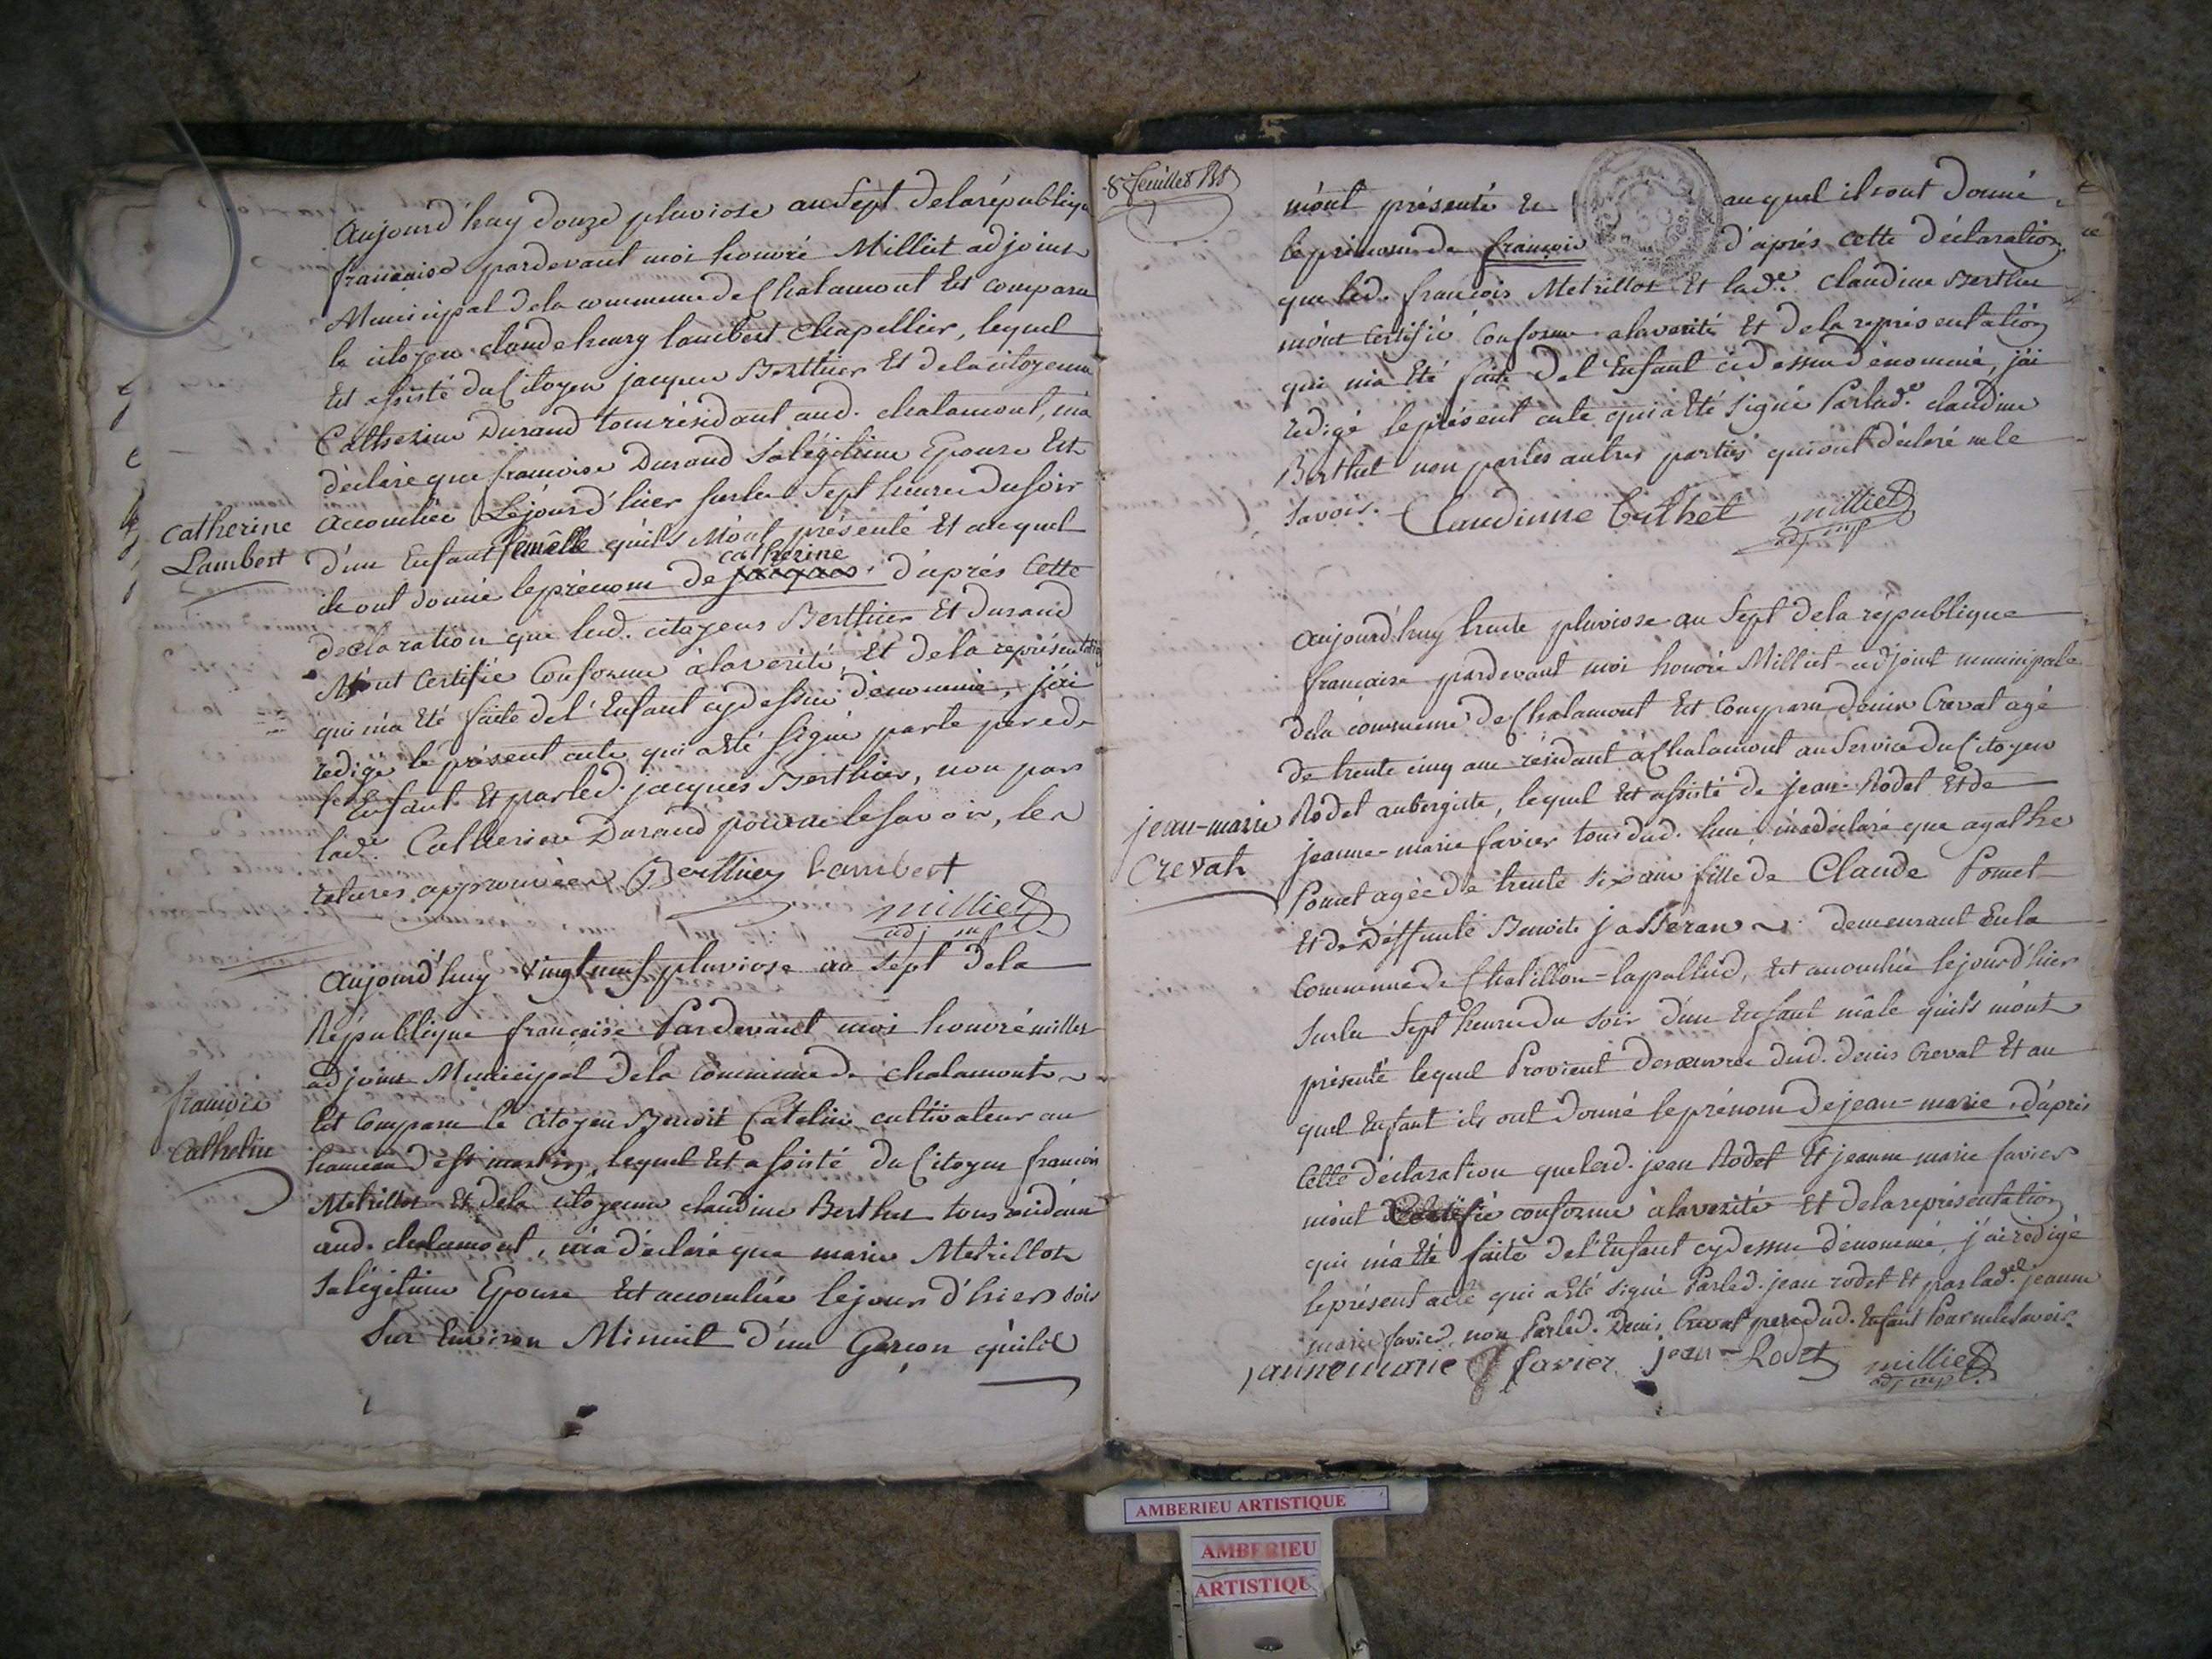 aujourd'huy douze pluviose an sept de la républiqu
francaise pardevant moi honoré Milliet adjoint
Municipal de la commune de Chalamont Est comparu
le citoyen claude henry lambert chapellier, lequel
Est assisté du Citoyen jacques Berthier Et de la citoyenne
Catherine Durand tous résidant aud. chalamont, m'a
déclaré que francoise Durand sa légitime Epouse Est
accouchée Le jour d'hier sur les sept heures du soir
d'un Enfant femêlle qu'ils M'ont présenté Et auquel
catherine
ils ont donné le prénom de jacques. d'après Cette
declaration que lesd. citoyens Berthier Et Durand
M'ont Certifié Conforme à la verité, Et de la représentation
qui m'a Eté faite de l'Enfant cy dessus dénommé, j'ai
redigé le présent acte qui a Eté signé par le pere de
l'Enfant Et par led. jacques Berthier, non par
lade. Catherine Durand pour ne le savoir, les
ratures approuvées Berthier Lambert
milliet
adj. m.
catherine
Lambert
aujourd'huy vingt neuf pluviose an sept de la
République francaise Pardevant moi honoré milliet
adjoint Municipal de la commune de chalamont
Est Comparu le Citoyen Benoit Catelin cultivateur au
hameau de st martin, lequel Est assisté du Citoyen francois
Metrillot Et de la citoyenne claudine Berthet tous résidant
aud. chalamont, m'a déclaré que marie Metrillot
sa légitime Epouse Est accouchée le jour d'hier soir
sur Environ Minuit d'un Garcon qu'ils
francois
Cathelin
8e feuillet
m'ont présenté Et auquel ils ont donné
le prénom de francois d'après cette déclaration
que led. francois Metrillot Et lade. claudine Berthet
m'ont certifié Conforme a la verité Et de la représentation
qui m'a Eté faite de l'Enfant ci dessus dénommé, j'ai
redigé le présent acte qui a Eté signé Par lade. claudine
Berthet non par les autres parties qui ont déclaré ne le
savoir. Claudinne Bethet milliet
adj. mp
aujourd'huy trente pluviose an sept de la république
francaise pardevant moi honoré Milliet adjoint municipale
de la commune de Chalamont Est Comparu denis Crevat agé
de trente cinq ans résidant à Chalamont au Service du Citoyen
Rodet aubergiste, lequel Est assisté de jean Rodet Et de
jeanne-marie favier tous dud. lieu, m'a déclaré que agathe
Pomet agée de trente six ans fille de Claude Pomet
Et de deffunte Benoite jasseran demeurant En la
Commune de Chatillon-lapallud, Est accouchée le jour d'hier
sur les sept heures du soir d'un Enfant mâle qu'ils m'ont
présenté lequel Provient des œuvres dud. denis Crevat Et au
quel Enfant ils ont donné le prénom de jean-marie, d'après
Cette déclaration que lesd. jean Rodet Et jeanne marie favier
m'ont Certifié conforme à la verité Et de la représentation
qui m'a Eté faite de l'Enfant cy dessus dénommé, j'ai redigé
le présent acte qui a Eté signé Par led. jean rodet Et par lade. jeanne
marie favier, non Par led. Denis Crevat pere dud. Enfant Pour ne le savoir.
jannemarie favier jean Rodet milliet
adj. mp.
jean-marie
Crevat
AMBERIEU ARTISTIQUE
AMBERIEU
ARTISTIQU